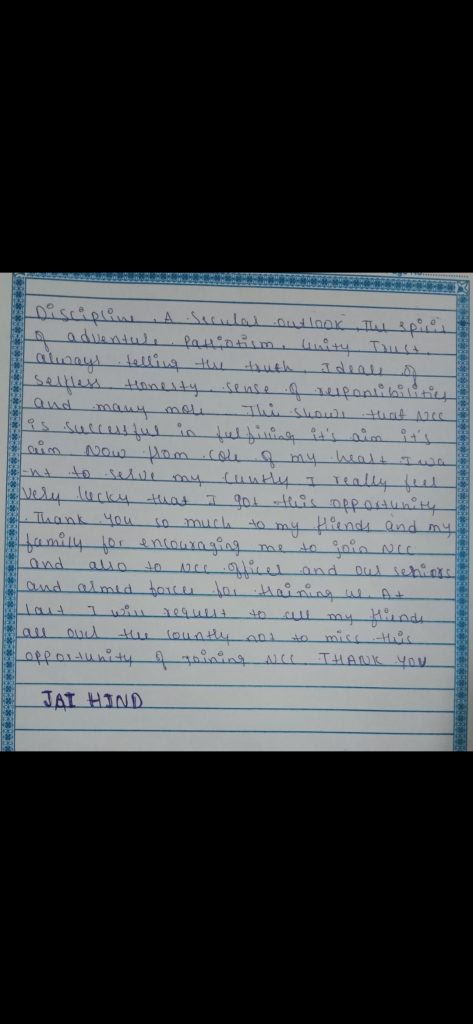 Discipline, A Secular outlook, The spirit
of adventure, Patriotism, Unity Trust,
always telling the truth, Ideals of
selfless Honesty, sense of responsibilities
and many more. This shows that NCC
is successful in fulfining it's aim it's
aim Now from core of my heart I wa
-nt to serve my country I really feel
very lucky that I got this opportunity
. Thank you so much to my friends and my
family for encouraging me to join NCC
and also to NCC officer and our seniors
and armed forces for training us. At
last I will request to all my friends
all over the country not to miss this
opportunity of joining NCC. THANK YOU
JAI HIND